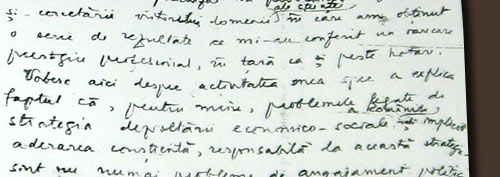 ale scoalei
și cercetării viitorului domenii în care am obținut
o serie de rezultate ce mi-au conferit un oarecare
prestigiu profesional, în țară ca și peste hotare.
Vorbesc aici despre activitatea mea spre a explica
faptul că, pentru mine, problemele legate de
a României,
strategia dezvoltării economico-sociale și implicit
aderarea conștientă, responsabilă la această strategie
sînt nu numai probleme de angajament politic